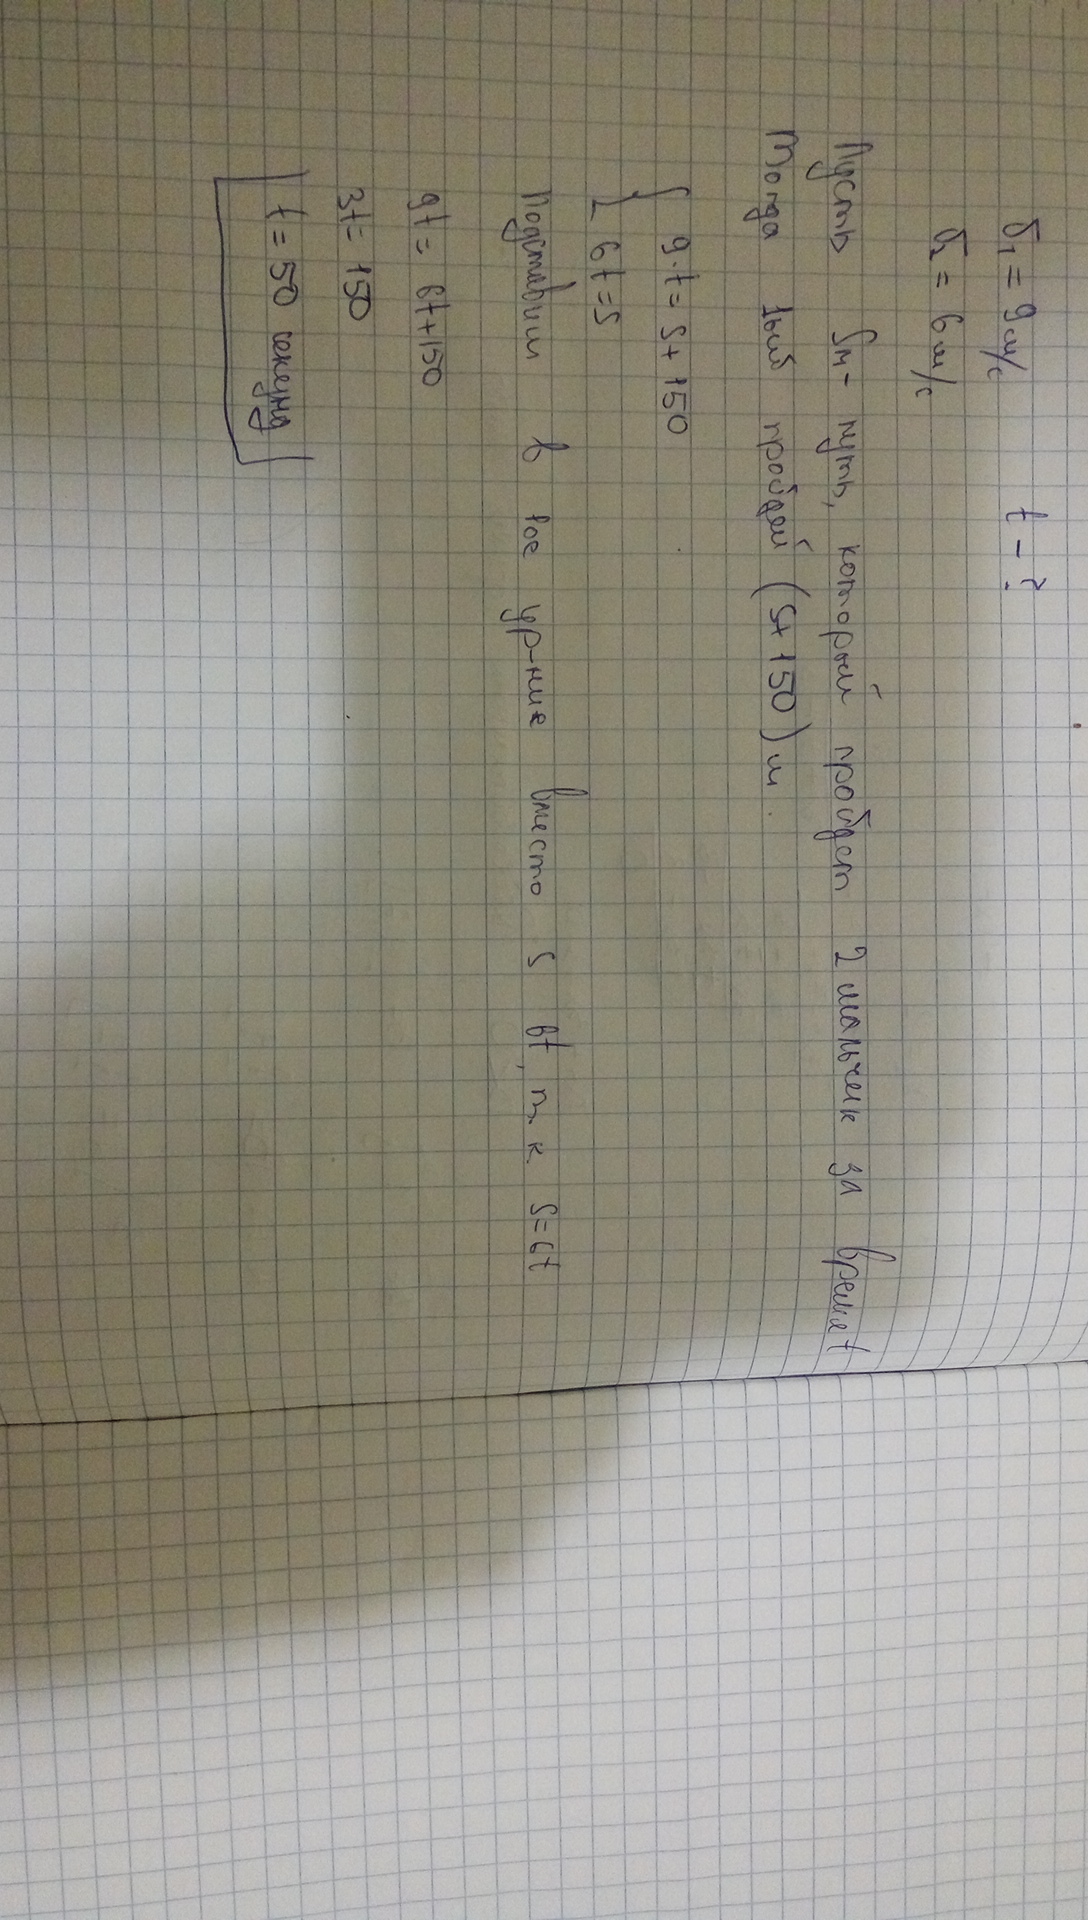 υ₁ = 9 м/с t - ?
υ₂ = 6 м/с
Пусть Sм - путь, который пройдет 2 мальчик за время t
Тогда 1ый пройдей (S+150) м
{ 9·t = S+150
6t = S
Подставим в 1ое ур-ние вместо S 6t, т.к S=6t
9t = 6t+150
3t = 150
t = 50 секунд